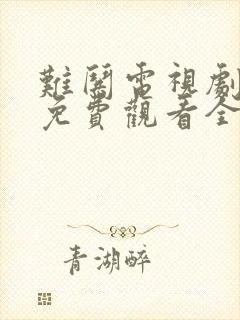 難鬪電視劇
免費觀看全
青湖醉